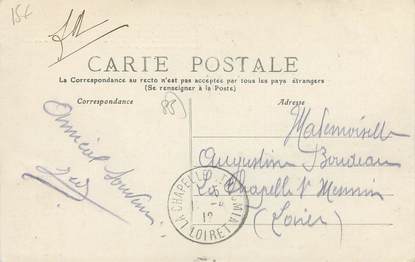 15€
CARTE POSTALE
La Correspondance au recto n'est pas acceptée par tous les pays étrangers
(Se renseigner à la Poste)
Correspondance
85
Adresse
Amical Souvenir
Mademoiselle
Augustine Boudeau
La Chapelle St Mesmin
(Loiret)
LA CHAPELLE
LOIRET
12